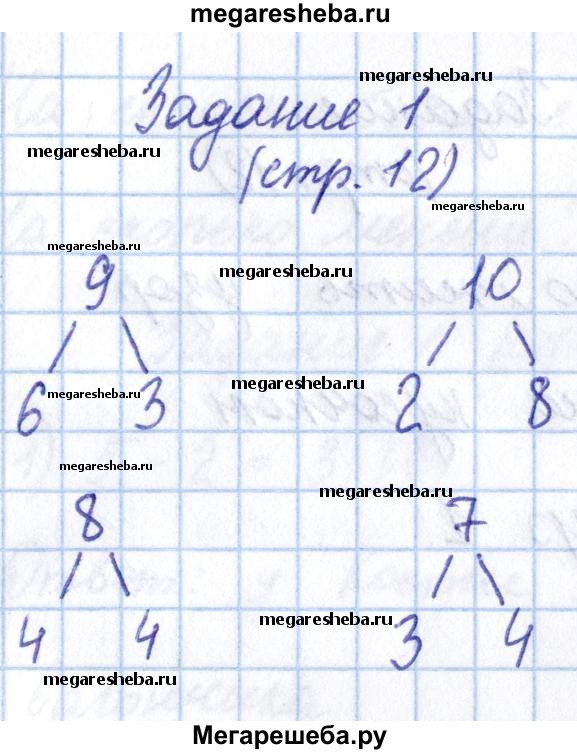 megaresheba.ru
megaresheba.ru
Задание 1
megaresheba.ru
(стр. 12)
megaresheba.ru
megaresheba.ru
megaresheba.ru
9 10
megaresheba.ru
megaresheba.ru
6 3 2 8
megaresheba.ru
megaresheba.ru
8 7
megaresheba.ru
4 4 3 4
megaresheba.ru
Мегарешеба.ру